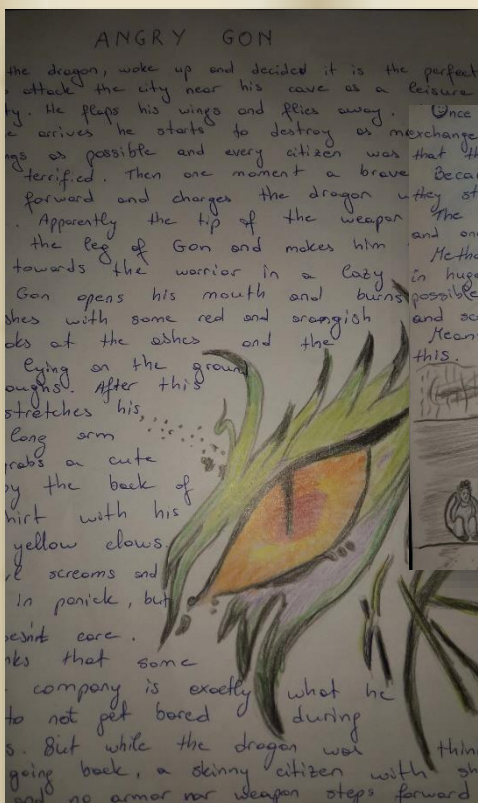 ANGRY GON
the dragon, woke up and decided it is the perfect
attack the city near his cave as a leisure
ty. He flaps his wings and flies away.
e arrives he starts to destroy as m
ngs as possible and every citizen was
terrified. Then one moment a brave
forward and charges the dragon w
. Apparently the tip of the weapon
the leg of Gon and makes him
towards the warrior in a lazy
Gon opens his mouth and burns
shes with some red and orangish
oks at the ashes and the
lying on the ground
oughs. After this
stretches his
long arm
grabs a cute
by the back of
hirt with his
yellow claws.
screams and
in panick, but
oesn't care.
nks that some
company is exactly what he
to not get bored during
s. But while the dragon was thin
going back, a skinny citizen with sh
and no armor nor weapon steps forward
Once
exchange
that th
Becau
they st
The
and on
Metho
in huge
possible
and sc
Mean
this.